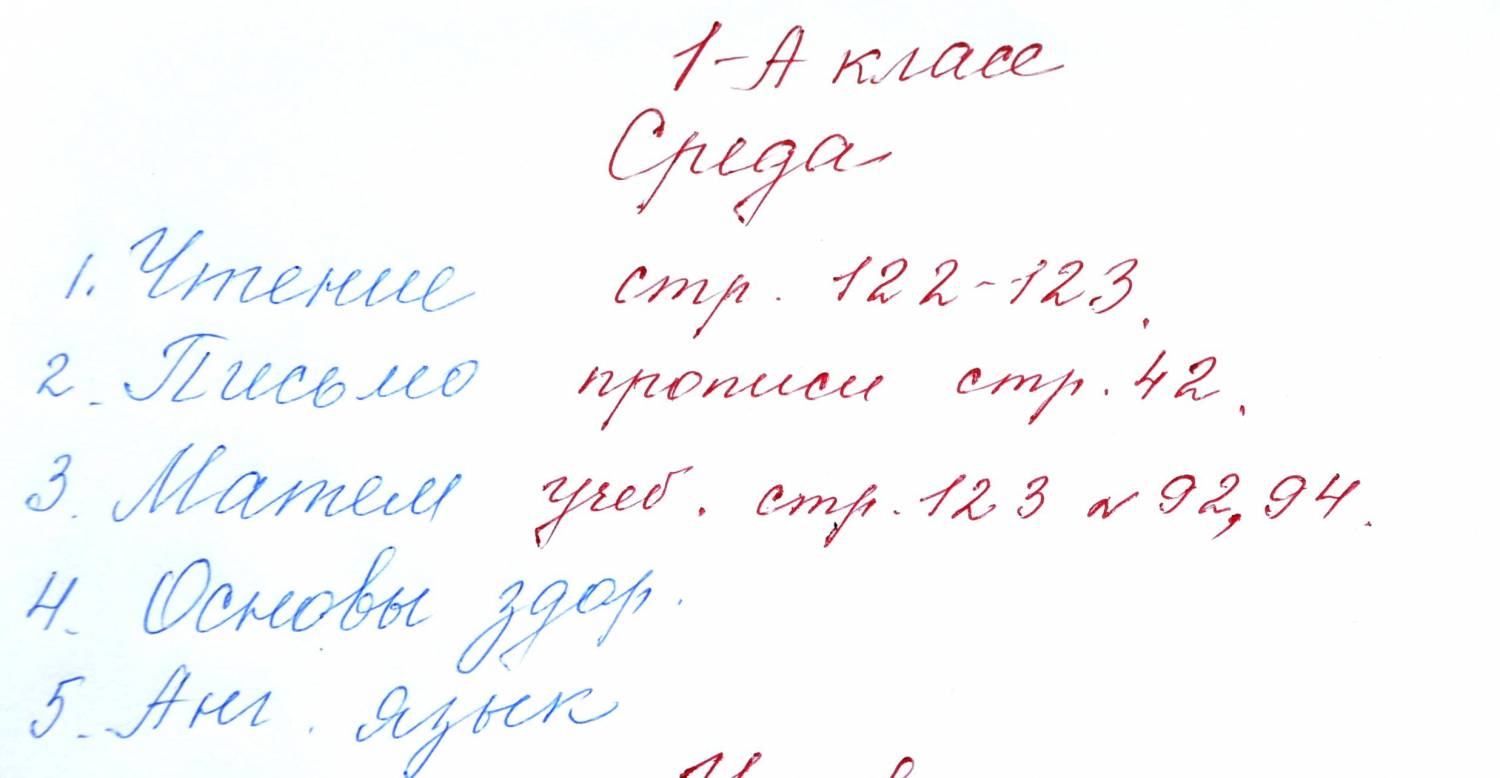 1-А класс
Среда
1. Чтение стр. 122-123.
2. Письмо прописи стр. 42.
3. Матем учеб. стр. 123 № 92, 94.
4. Основы здор.
5. Анг. язык